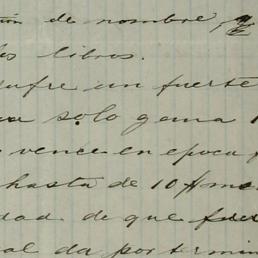 ión de nombre,
los libros.
sufre un fuerte
solo gana
vence en epoca
hasta de 10
dad de que fuer
al da por termin